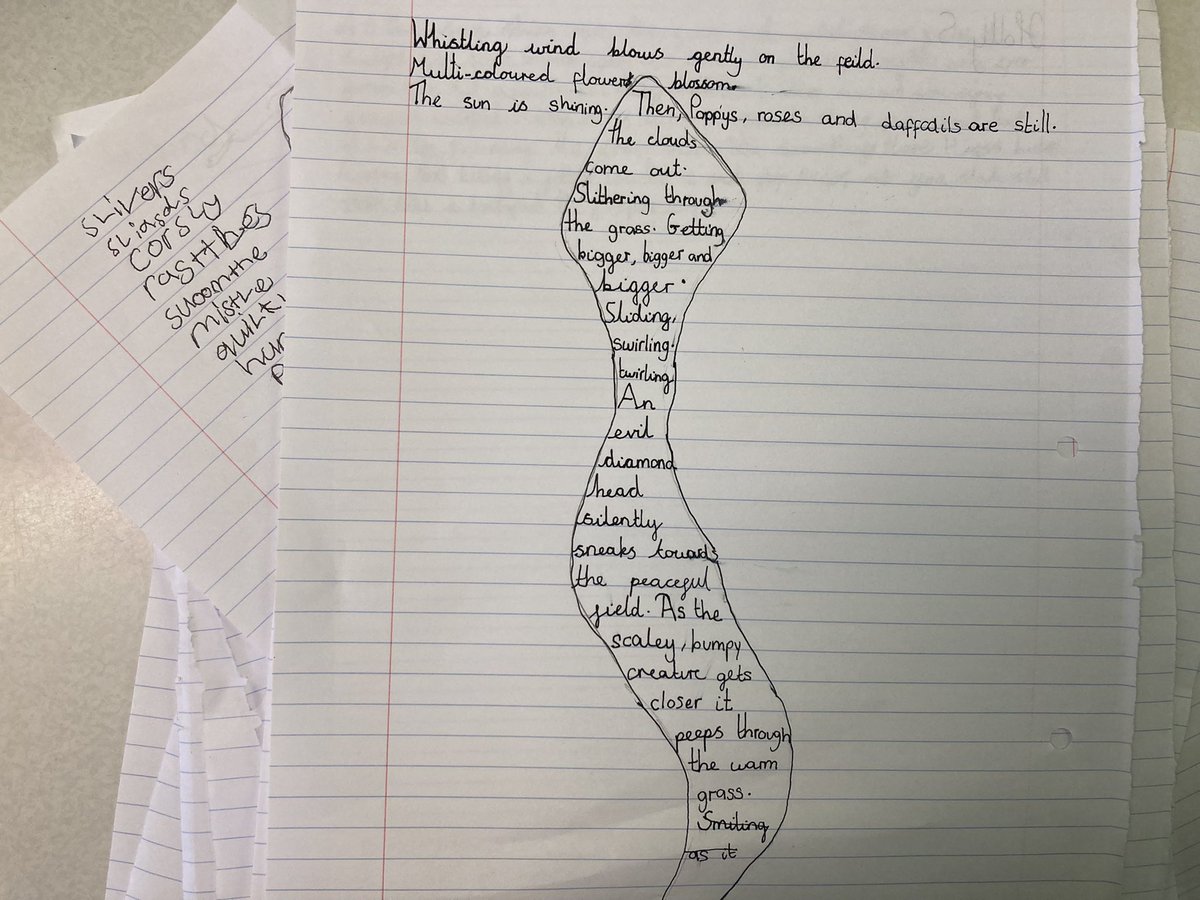 Whistling wind blows gently on the feild.
Multi-coloured flowers blossom.
The sun is shining. Then, Poppys, roses and daffodils are still.
the clouds
come out.
Slithering through
the grass. Getting
bigger, bigger and
bigger.
Sliding,
swirling.
twirling
An
evil
diamond
head
silently
sneaks towards
the peaceful
field. As the
scaley, bumpy
creature gets
closer it
peeps through
the warm
grass.
Smiling
as it
slivers
sliasds
corsly
rastthes
swoonthe
mistke